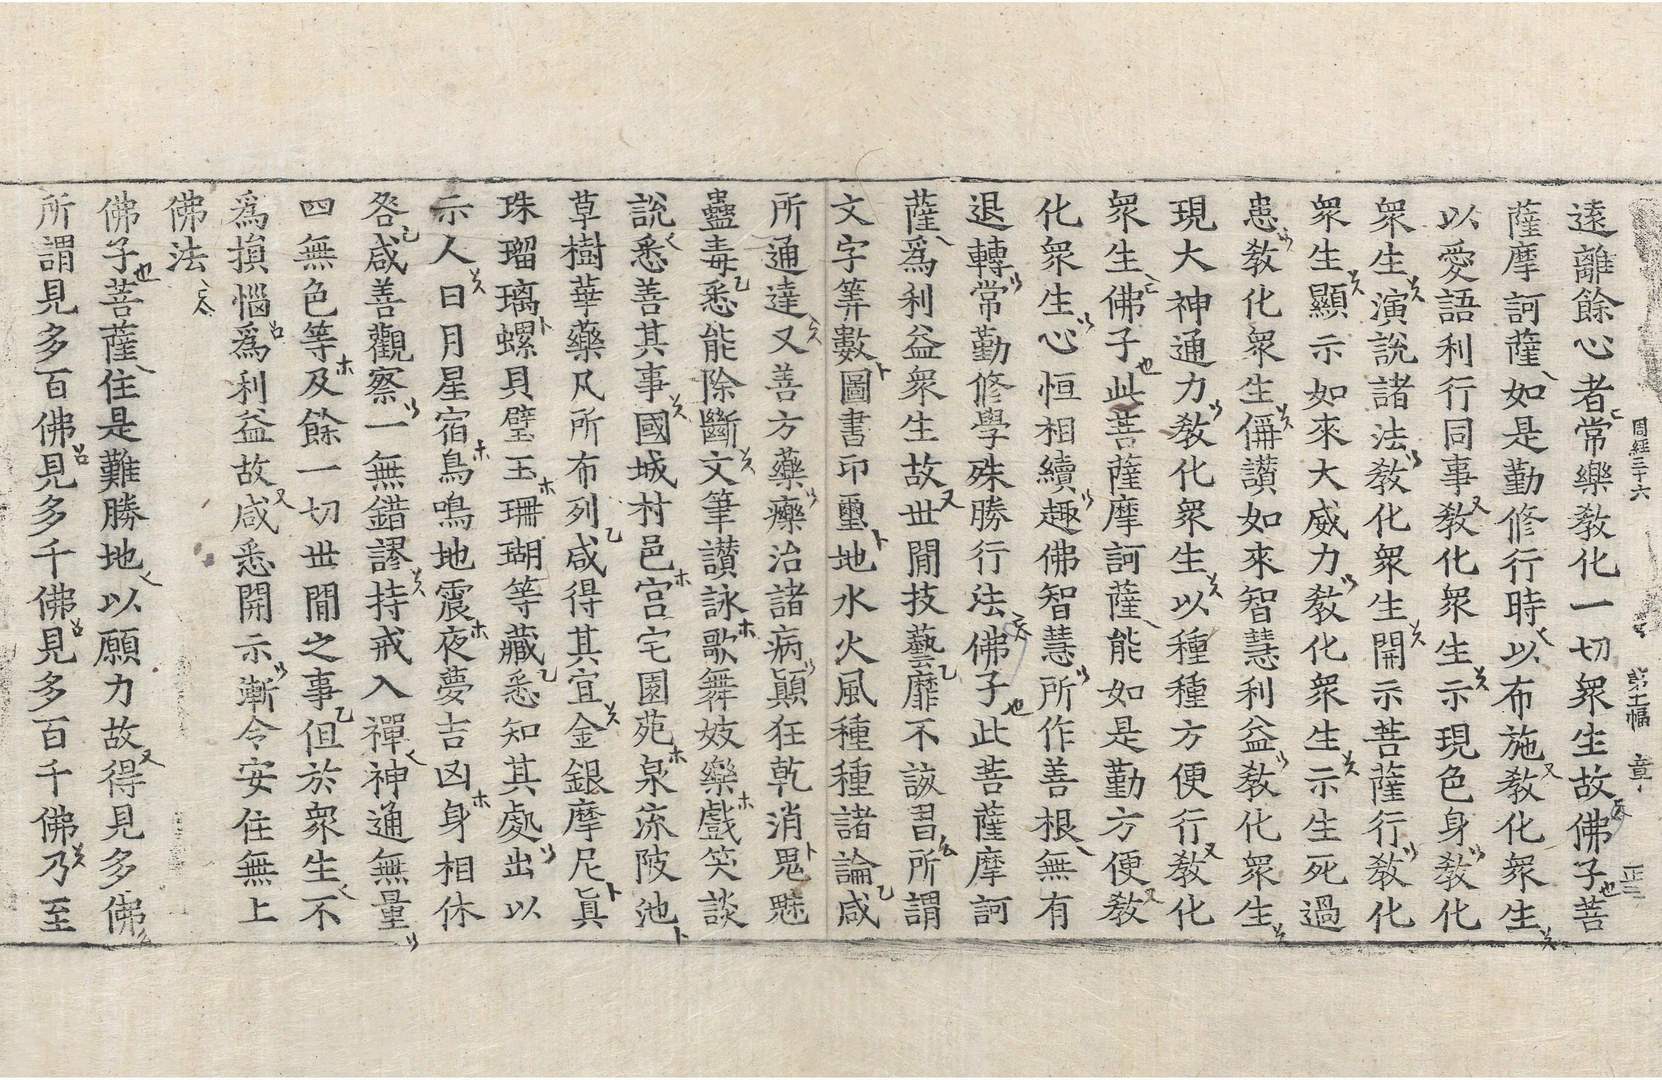 周經三十六
遠離餘心者常樂敎化一切衆生故佛子菩
薩摩訶薩如是勤修行時以布施敎化衆生
以愛語利行同事敎化衆生示現色身敎化
衆生演說諸法敎化衆生開示菩薩行敎化
衆生顯示如來大威力敎化衆生示生死過
患敎化衆生偁讃如來智慧利益敎化衆生
現大神通力敎化衆生以種種方便行敎化
衆生佛子此菩薩摩訶薩能如是勤方便敎
化衆生心恒相續趣佛智慧所作善根無有
退轉常勤修學殊勝行法佛子此菩薩摩訶
薩爲利益衆生故世間技藝靡不該習所謂
文字筭數圖書印璽地水火風種種諸論咸
所通達又善方藥療治諸病顚狂乾消鬼魅
蠱毒悉能除斷文筆讃詠歌舞妓樂戲笑談
說悉善其事國城村邑宮宅園苑泉流陂池
草樹華藥凡所布列咸得其宜金銀摩尼眞
珠瑠璃螺貝璧玉珊瑚等藏悉知其處出以
示人日月星宿鳥鳴地震夜夢吉凶身相休
咎咸善觀察一無錯謬持戒入禪神通無量
四無色等及餘一切世間之事但於衆生不
爲損惱爲利益故咸悉開示漸令安住無上
佛法
佛子菩薩住是難勝地以願力故得見多佛
所謂見多百佛見多千佛見多百千佛乃至